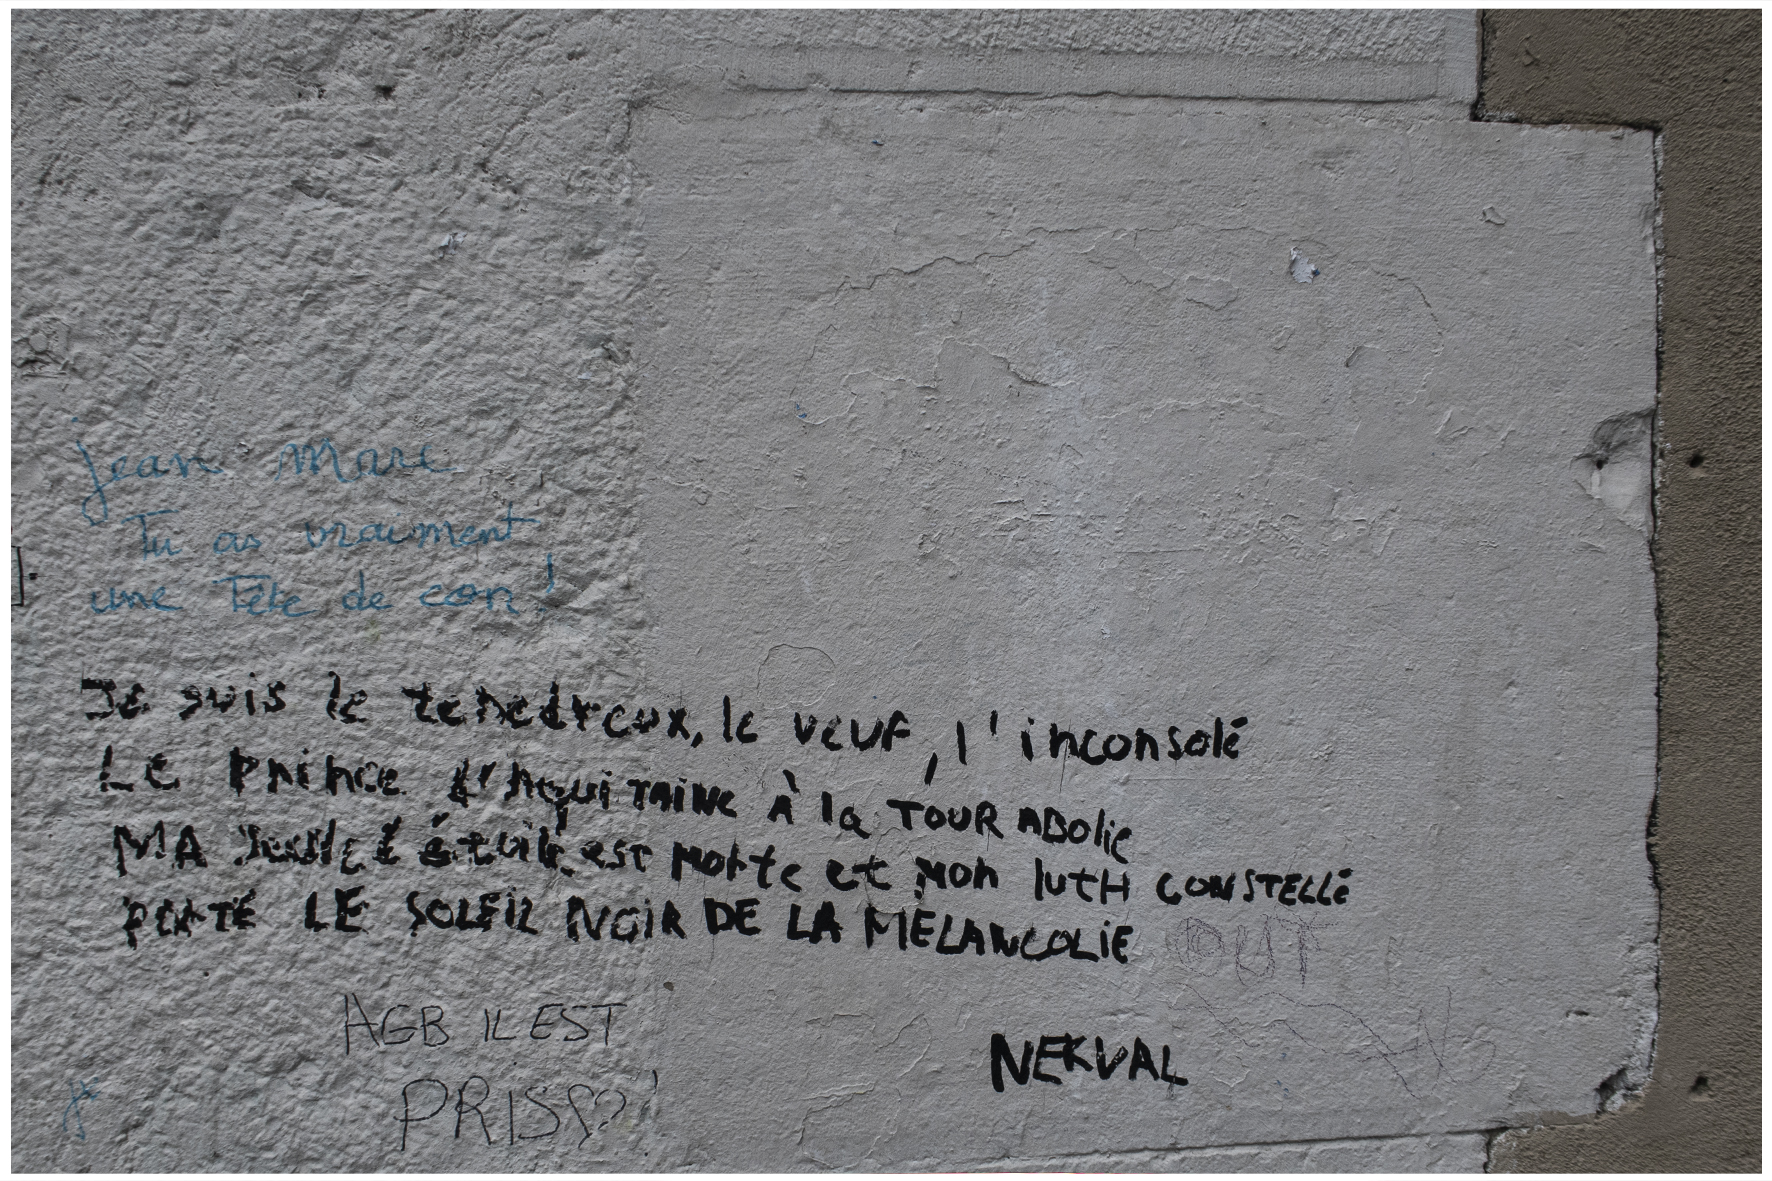 jean marc
Tu as vraiment
une Tête de con !
Je suis le tenebreux, le veuf, l'inconsolé
Le prince d'Aquitaine À la TOUR ABolie
MA seule étoile est morte et mon lutH CONSTELLÉ
PORTE LE SOLEIL NOIR DE LA MELANCOLIE
OUT
AGB IL EST
PRIS
NERVAL